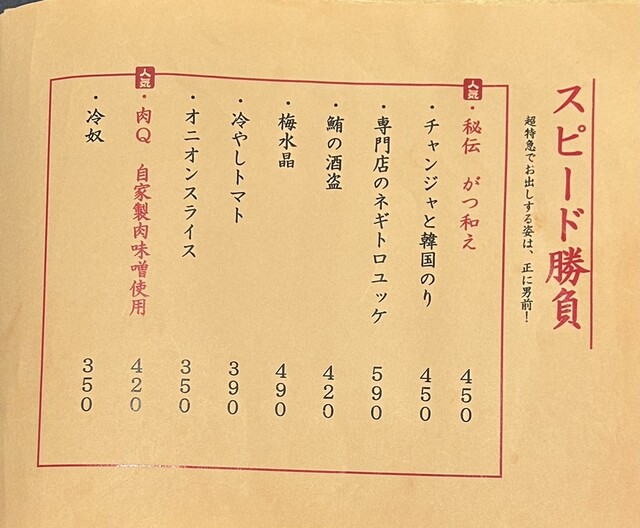 スピード勝負
超特急でお出しする姿は、正に男前！
人気
・秘伝 がつ和え 450
・チャンジャと韓国のり 450
・専門店のネギトロユッケ 590
・鮪の酒盗 420
・梅水晶 490
・冷やしトマト 390
・オニオンスライス 350
人気
・肉Q 自家製肉味噌使用 420
・冷奴 350